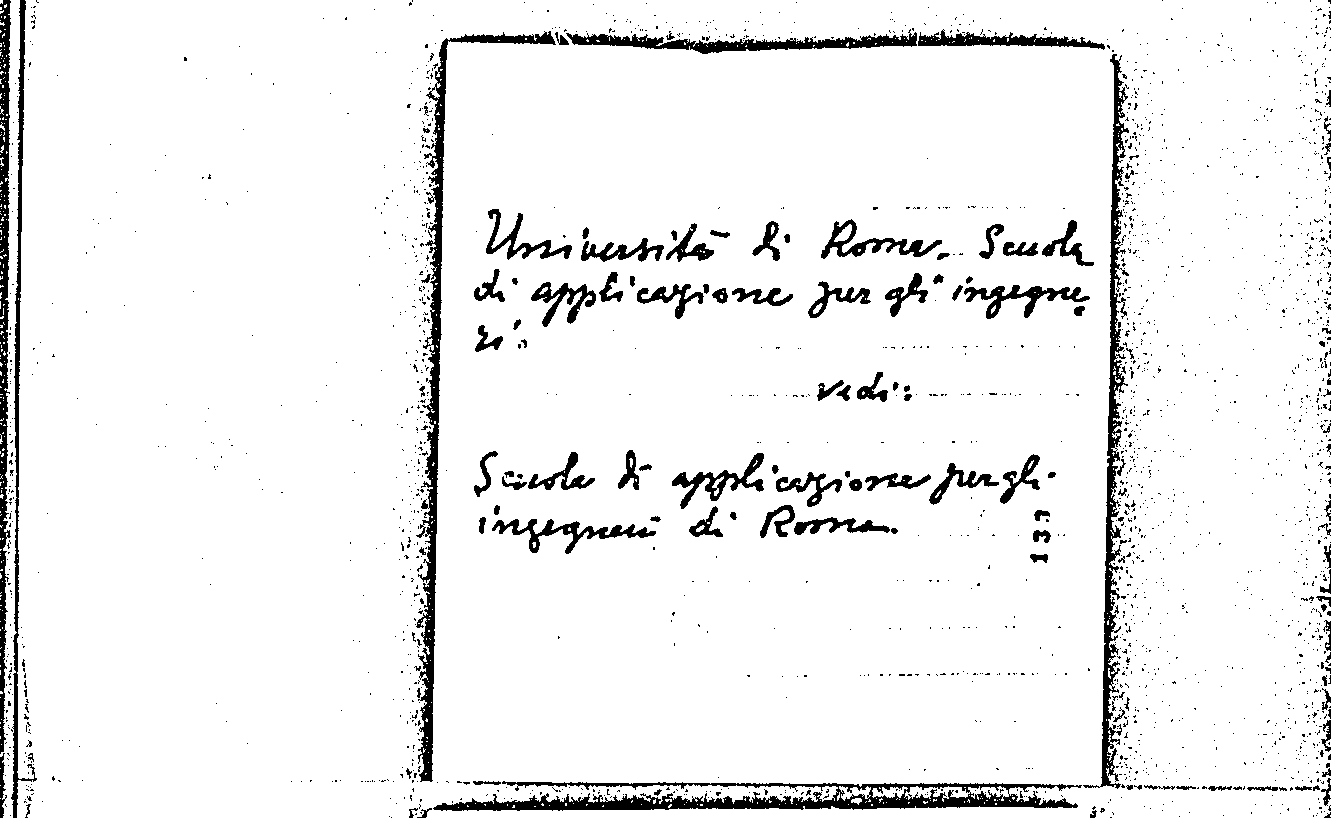 Università di Roma. Scuola
di applicazione per gli ingegne
ri.
vedi:
Scuola di applicazione per gli
ingegneri di Roma.
137